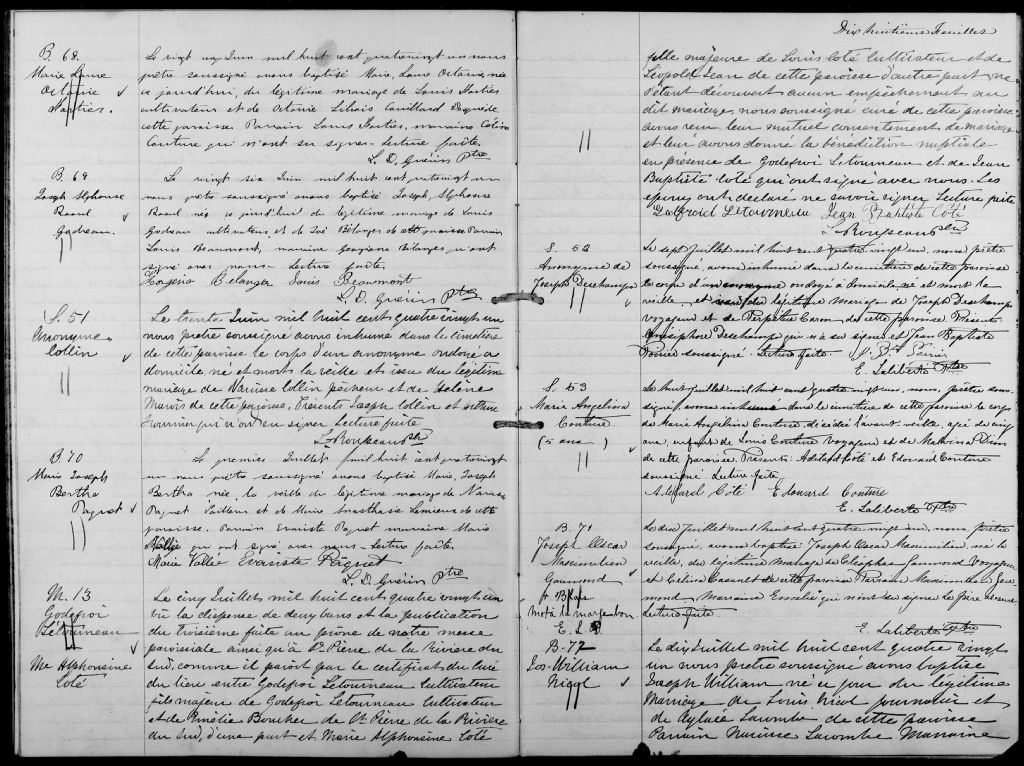 B. 68
Marie Laure
Octavie
Nortiès.
Le vingt un Juin mil huit cent quatrevingt un nous
prêtre soussigné avons baptisé Marie, Laure Octavie, née
ce jourd'hui, du légitime mariage de Louis
cultivateur et de Octavie Couillard Dupuis de
cette paroisse. Parrain Louis marraine
Couture qui n'ont su signer. Lecture faite.
L. D. Guérin Ptre
B. 69
Joseph Alphonse
Raoul
Godreau.
Le vingt six Juin mil huit cent quatrevingt un
nous prêtre soussigné avons baptisé Joseph, Alphonse
Raoul né ce jourd'hui du légitime mariage de Louis
Godreau cultivateur, et de Zoé Bélanger de cette paroisse Parrain
Louis Beaumont, marraine Georgina Bélanger, qui ont
signé avec nous. Lecture faite.
Georgina Bélanger Louis Beaumont
L. D. Guérin Ptre
S. 51
Anonyme
Collin
Le trente Juin mil huit cent quatre vingt un
nous prêtre soussigné avons inhumé dans le cimetière
de cette paroisse le corps d'un anonyme ondoié a
domicile, né et morts la veille et issu du légitime
mariage de Narcisse Collin pêcheur et de Helène
Marois de cette paroisse. Présents Joseph Collin et Arthur
Fournier qui n'ont su signer Lecture faite
L. Roupeau Ptr
B. 70
Marie Joseph
Bertha
Paquet
Le premier Juillet mil huit cent quatrevingt
un nous prêtre soussigné avons baptisé Marie, Joseph
Bertha née la veille du légitime mariage de Narcisse
Paquet Tailleur et de Marie Anasthasie Lemieux de cette
paroisse. Parrain Evariste Paquet marraine Marie
Vallée qui ont signé avec nous. Lecture faite.
Marie Vallée Evariste Paquet
L. D. Guérin Ptre
M. 13
Godefroi
Létourneau
&
Me Alphonsine
Coté
Le cinq Juillet mil huit cent quatre vingt un
vu la dispense de deux bans et la publication
du troisième faite au prone de notre messe
paroissiale ainsi qu'à St Pierre de la Rivière du
Sud, comme il parôit par le certificat du Curé
du lieu entre Godefroi Letourneau Cultivateur
fils majeur de Godefroi Letourneau Cultivateur
et de Emélie Boucher de St Pierre de la Rivière
du Sud, d'une part et Marie Alphonsine Coté
Dix huitième Feuilles
fille majeure de Louis Coté Cultivateur et de
Léopold Jean de cette paroisse d'autre part, ne
s'étant découvert aucun empêchement au
dit mariage, nous soussigné curé de cette paroisse
avons reçu leur mutuel consentement de mariage
et leur avons donné la bénédiction nuptiale
en présence de Godefroi Letourneau et de Jean
Baptiste Coté qui ont signé avec nous. Les
époux ont déclaré ne savoir signer Lecture faite
Godfroid Letourneau Jean Baptiste Coté
L. Roupeau Ptr
S. 52
Anonyme de
Joseph Deschamps
Le sept Juillet mil huit cent quatre vingt un, nous prêtre
soussigné, avons inhumé dans le cimetière de cette paroisse
le corps d'un anonyme ondoyé à domicile, né et mort la
veille, et du légitime mariage de Joseph Deschamps
voyageur et de Perpetue Caron de cette paroisse. Présents
Onésiphore Deschamps qui n'a su signer et Jean Baptiste
Poirier soussigné. Lecture faite. J. Bte Poirier
E. Laliberté Ptre
S. 53
Marie Angelina
Couture
(5 ans)
Le huit Juillet mil huit cent quatre vingt un, nous, prêtre sous-
signé, avons inhumé dans le cimetière de cette paroisse le corps
de Marie Angelina Couture, décédée l'avant veille, agée de cinq
ans, enfant de Louis Couture Voyageur et de Mathina Dion
de cette paroisse. Présents: Adelard Coté et Edouard Couture
soussigné Lecture faite
Adelard Coté Edouard Couture
E. Laliberté Ptre
B. 71
Joseph Oscar
Maximilien
Gaumond
mots la marge bon.
E. L.
Le dix Juillet mil huit cent quatre vingt un, nous, prêtre
soussigné, avons baptisé Joseph Oscar Maximilien, né la
veille, du légitime mariage de Cléophas Gaumond Voyageur
et Celina Casault de cette paroisse Parrain Maximilien Gau-
mond Marraine qui n'ont su signer
Lecture faite.
E. Laliberté Ptre
B. 72
Jos. William
Nicol
Le dix Juillet mil huit cent quatre vingt
un nous prêtre soussigné avons baptisé
Joseph William né ce jour du légitime
Mariage de Louis Nicol journalier et
de Aglaée Lacombe de cette paroisse
Parrain Narcisse Lacombe Marraine